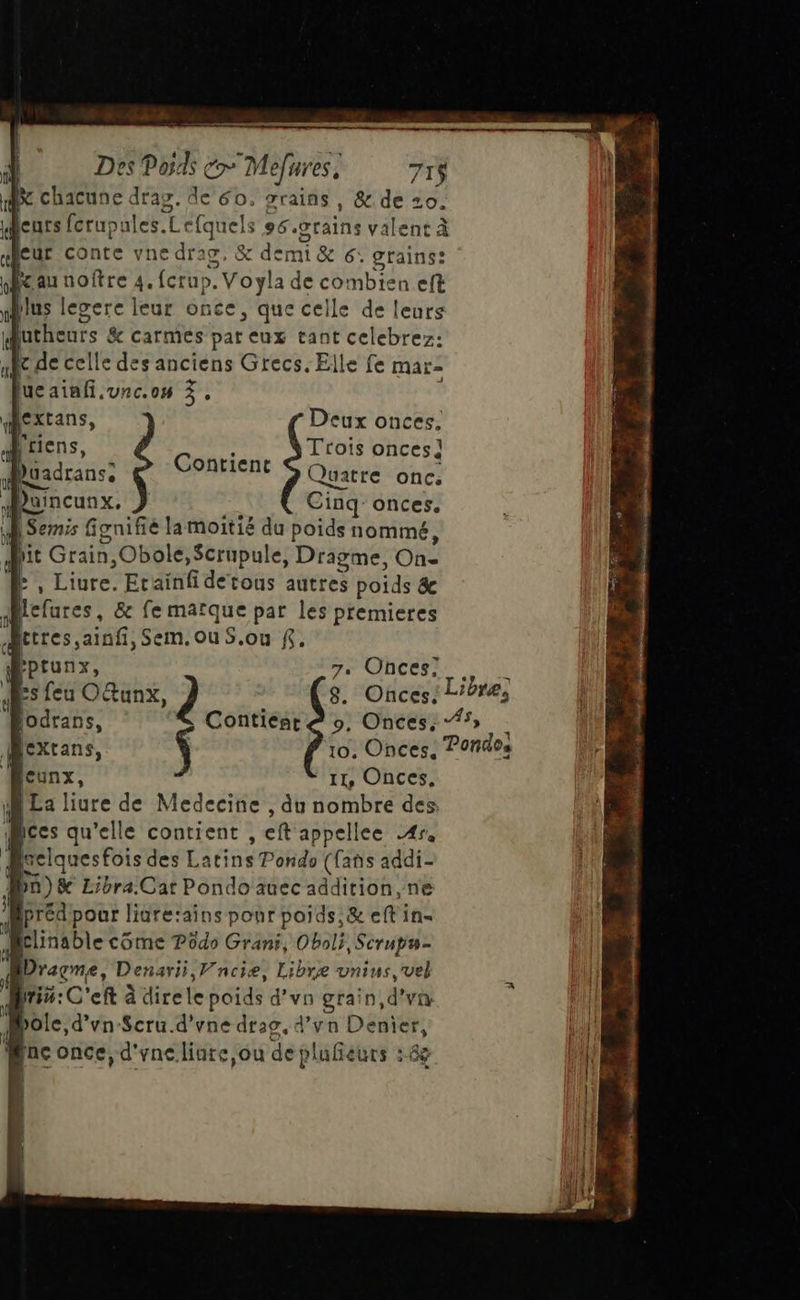 Des Poids & Mesures, 715
& chacune drag. de 60. grains, & de 20.
eurs scrupules. Lesquels 96. grains valent à
leur conte vne drag. & demi & 6. grains:
& au nostre 4. scrup. Voyla de combien est
plus legere leur once, que celle de leurs
Autheurs & carmes par eux tant celebrez:
& de celle des anciens Grecs. Elle se mar-
que ainsi, vnc. ou ℥.
Sextans, Deux onces.
Triens, Trois onces.
Quadrans. Contient Quatre onc.
Quincunx. Cinq onces.
Semis signifie la moitié du poids nommé,
soit Grain, Obole, Scrupule, Dragme, On-
ce, Liure. Et ainsi de tous autres poids &
Mesures, & se marque par les premieres
lettres, ainsi, Sem. ou S. ou ß.
Septunx, 7. Onces.
Bes seu Octunx, 8. Onces. Libræ,
Dodrans, Contient 9. Onces. As,
Dextans, 10. Onces. Pondo,
Deunx, 11, Onces.
La liure de Medecine, du nombre des
onces qu'elle contient, est appellee As,
quelquesfois des Latins Pondo (sans addi-
on) & Libra. Car Pondo auec addition, ne
se préd pour liure: ains pour poids, & est in-
declinable cõme Põdo Grani, Oboli, Scrupu-
Dragmæ, Denarii, Vnciæ, Libræ vnius, vel
C'est à dire le poids d'vn grain, d'vn
obole, d'vn Scru. d'vne drag. d'vn Denier,
d'vne once, d'vne liure, ou de plusieurs : &